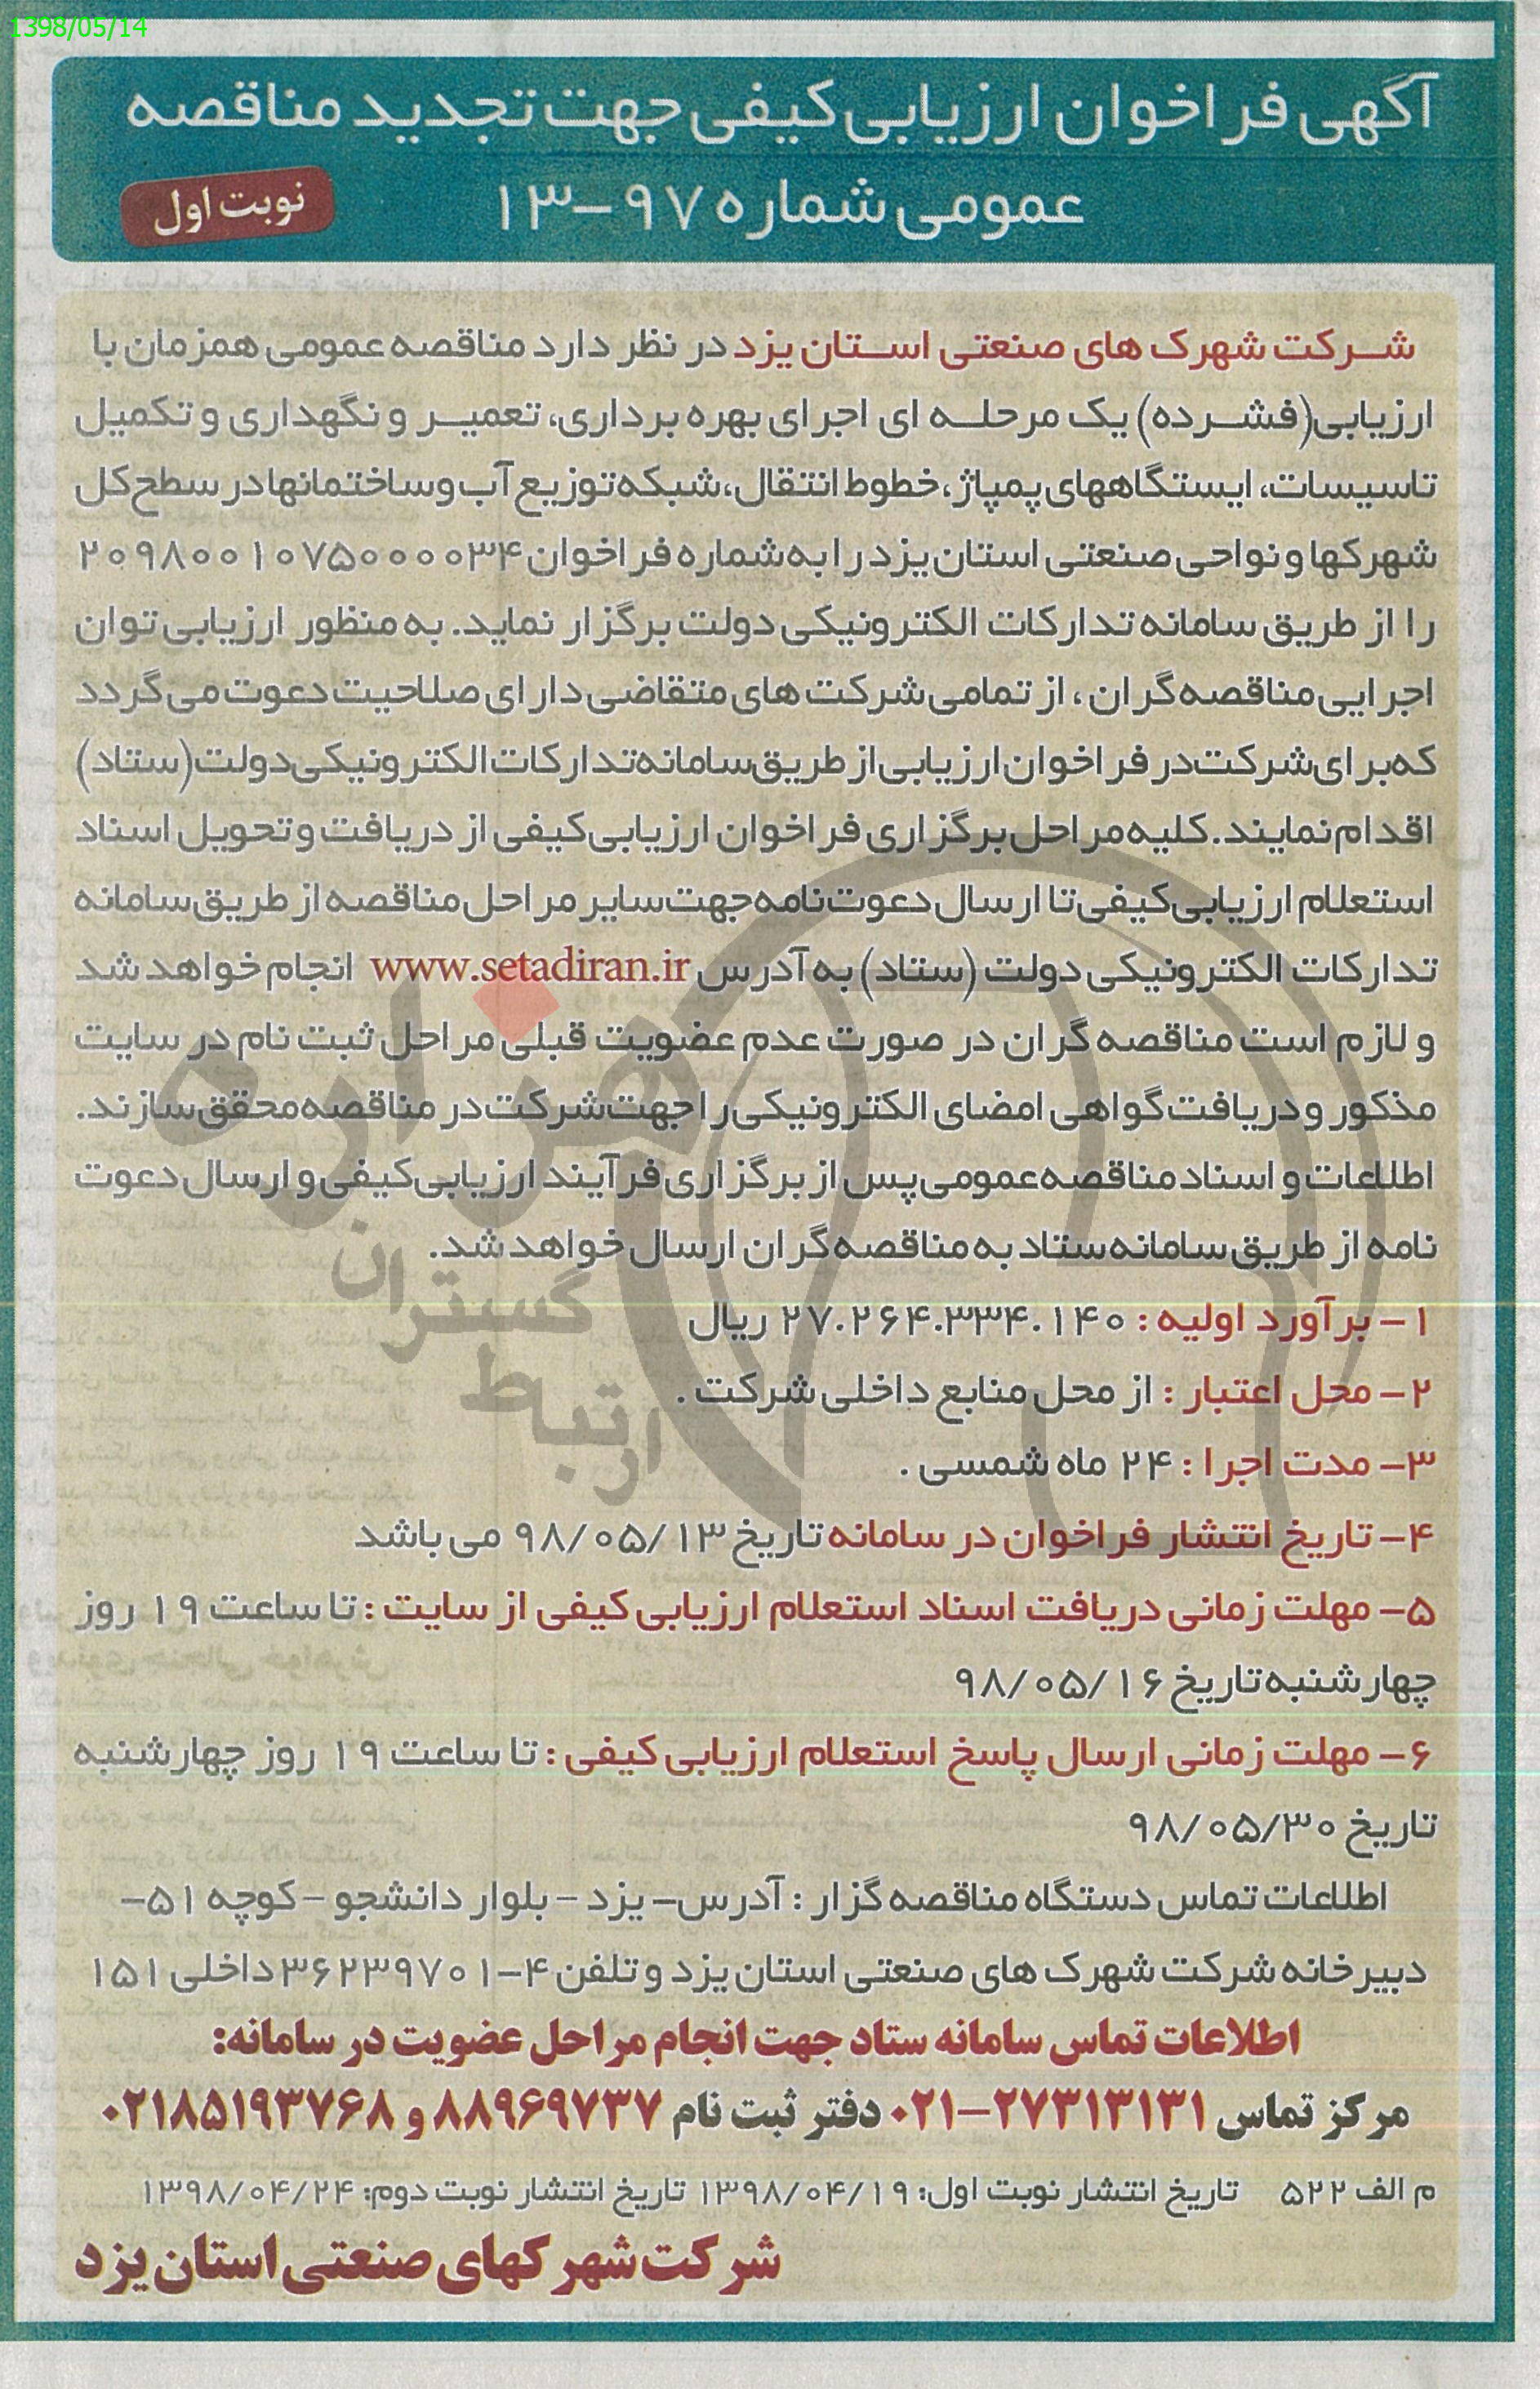 1398/05/14
آگهی فراخوان ارزیابی کیفی جهت تجدید مناقصه
عمومی شماره ۹۷-۱۳
نوبت اول
شرکت شهرک های صنعتی استان یزد در نظر دارد مناقصه عمومی همزمان با
ارزیابی(فشرده) یک مرحله ای اجرای بهره برداری، تعمیر و نگهداری و تکمیل
تاسیسات، ایستگاههای پمپاژ، خطوط انتقال، شبکه توزیع آب و ساختمانها در سطح کل
شهرکها و نواحی صنعتی استان یزد را به شماره فراخوان ۲۰۹۸۰۰۱۰۷۵۰۰۰۰۳۴
را از طریق سامانه تدارکات الکترونیکی دولت برگزار نماید. به منظور ارزیابی توان
اجرایی مناقصه گران ، از تمامی شرکت های متقاضی دارای صلاحیت دعوت می گردد
که برای شرکت در فراخوان ارزیابی از طریق سامانه تدارکات الکترونیکی دولت (ستاد)
اقدام نمایند. کلیه مراحل برگزاری فراخوان ارزیابی کیفی از دریافت و تحویل اسناد
استعلام ارزیابی کیفی تا ارسال دعوت نامه جهت سایر مراحل مناقصه از طریق سامانه
تدارکات الکترونیکی دولت (ستاد) به آدرس www.setadiran.ir انجام خواهد شد
و لازم است مناقصه گران در صورت عدم عضویت قبلی مراحل ثبت نام در سایت
مذکور و دریافت گواهی امضای الکترونیکی را جهت شرکت در مناقصه محقق سازند.
اطلاعات و اسناد مناقصه عمومی پس از برگزاری فرآیند ارزیابی کیفی و ارسال دعوت
نامه از طریق سامانه ستاد به مناقصه گران ارسال خواهد شد.
۱- برآورد اولیه : ۲۷.۲۶۴.۳۳۴.۱۴۰ ریال
۲- محل اعتبار : از محل منابع داخلی شرکت .
۳- مدت اجرا : ۲۴ ماه شمسی .
۴- تاریخ انتشار فراخوان در سامانه تاریخ ۹۸/۰۵/۱۳ می باشد
۵- مهلت زمانی دریافت اسناد استعلام ارزیابی کیفی از سایت : تا ساعت ۱۹ روز
چهارشنبه تاریخ ۹۸/۰۵/۱۶
۶- مهلت زمانی ارسال پاسخ استعلام ارزیابی کیفی : تا ساعت ۱۹ روز چهارشنبه
تاریخ ۹۸/۰۵/۳۰
اطلاعات تماس دستگاه مناقصه گزار : آدرس- یزد - بلوار دانشجو - کوچه ۵۱-
دبیرخانه شرکت شهرک های صنعتی استان یزد و تلفن ۴-۳۶۲۳۹۷۰۱ داخلی ۱۵۱
اطلاعات تماس سامانه ستاد جهت انجام مراحل عضویت در سامانه:
مرکز تماس ۲۷۳۱۳۱۳۱-۰۲۱ دفتر ثبت نام ۸۸۹۶۹۷۳۷ و ۰۲۱۸۵۱۹۳۷۶۸
م الف ۵۲۲ تاریخ انتشار نوبت اول: ۱۳۹۸/۰۴/۱۹ تاریخ انتشار نوبت دوم: ۱۳۹۸/۰۴/۲۴
شرکت شهرکهای صنعتی استان یزد
هزاره
گستران
ارتباط